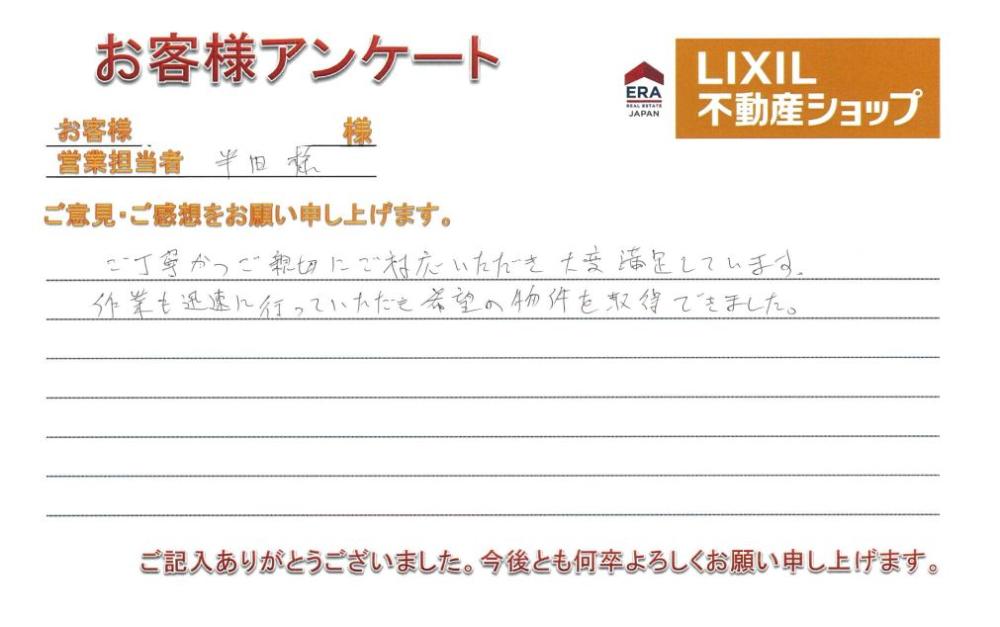 お客様アンケート
ERA
REAL ESTATE
JAPAN
LIXIL
不動産ショップ
お客様 様
営業担当者 半田 様
ご意見・ご感想をお願い申し上げます。
ご丁寧かつご親切にご対応いただき大変満足しています。
作業も迅速に行っていただき希望の物件を取得できました。
ご記入ありがとうございました。今後とも何卒よろしくお願い申し上げます。